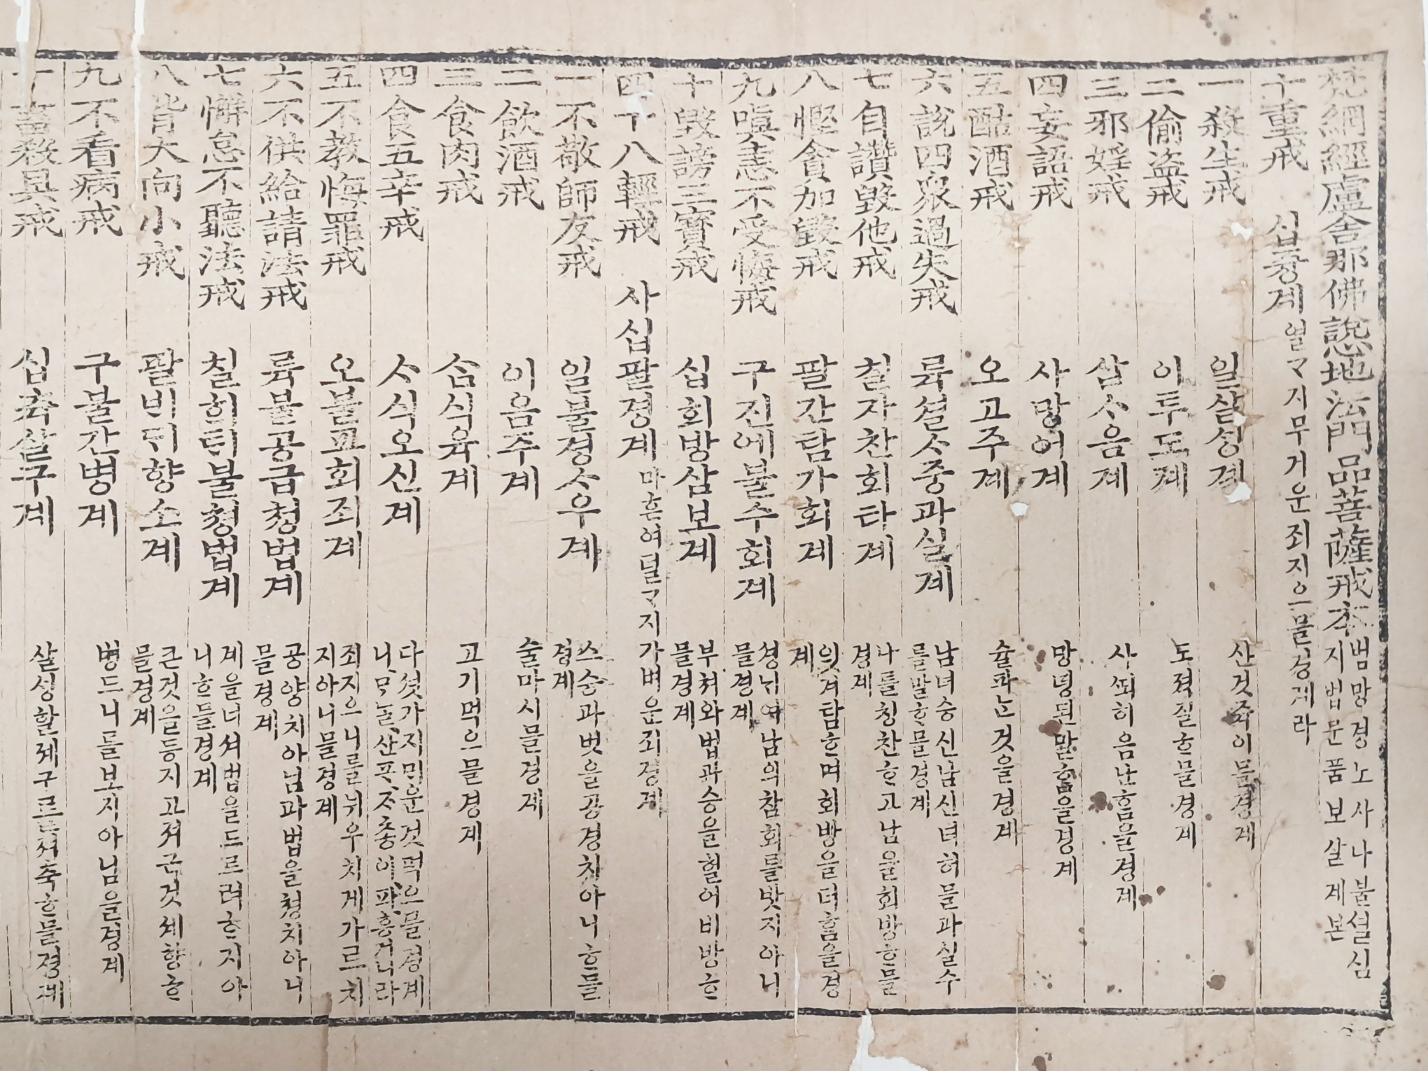 梵網經盧舍那佛說心地法門品菩薩戒本 범망경노사나불설심지법문품보살계본
十重戒 십즁계 열ᄀᆞ지무거운죄지으믈경계라
一殺生戒 일살싱계 산것쥭이믈경계
二偷盜戒 이투도계 도젹질ᄒᆞ믈경계
三邪婬戒 삼ᄉᆞ음계 샤쇠히음난ᄒᆞᆷ을경계
四妄語戒 사망어계 망녕된말ᄒᆞᆷ을경계
五酤酒戒 오고주계 슐파ᄂᆞᆫ것을경계
六說四眾過失戒 륙셜ᄉᆞ중과실계 남녀승신남신녀허믈과실수를말ᄒᆞ믈경계
七自讚毀他戒 칠자찬회타계 나를칭찬ᄒᆞ고남을회방ᄒᆞ믈경계
八慳貪加毀戒 팔간탐가회계 잇겨탐ᄒᆞ며회방을더ᄒᆞᆷ을경계
九嗔恚不受悔戒 구진에불수회계 셩님여남의참회를밧지아니믈경계
十毀謗三寶戒 십회방삼보계 부쳐와법과승을헐어비방ᄒᆞ믈경계
四十八輕戒 사십팔경계 마흔여덟ᄀᆞ지가벼운죄경계
一不敬師友戒 일불경ᄉᆞ우계 스승과벗을공경치아니ᄒᆞ믈경계
二飮酒戒 이음주계 술마시믈경계
三食肉戒 삼식육계 고기먹으믈경계
四食五辛戒 ᄉᆞ식오신계 다섯가지ᄆᆡ운것먹으믈경계니마ᄂᆞᆯ산파ᄌᆞ총이파흥건니라
五不敎悔罪戒 오불교회죄계 죄지으니를뉘우치게가르치지아니믈경계
六不供給請法戒 륙불공급청법계 공양치아님과법을쳥치아니믈경계
七懈怠不聽法戒 칠ᄒᆡᄐᆡ불청법계 계을너셔법을드르려ᄒᆞ지아니ᄒᆞ믈경계
八背大向小戒 팔ᄇᆡᄃᆡ향소계 큰것을등지고져근것셰향ᄒᆞ믈경계
九不看病戒 구불간병계 병드니를보지아님을경계
十畜殺具戒 십츅살구계 살싱할졔구르ᆞᆯ져축ᄒᆞ믈경계